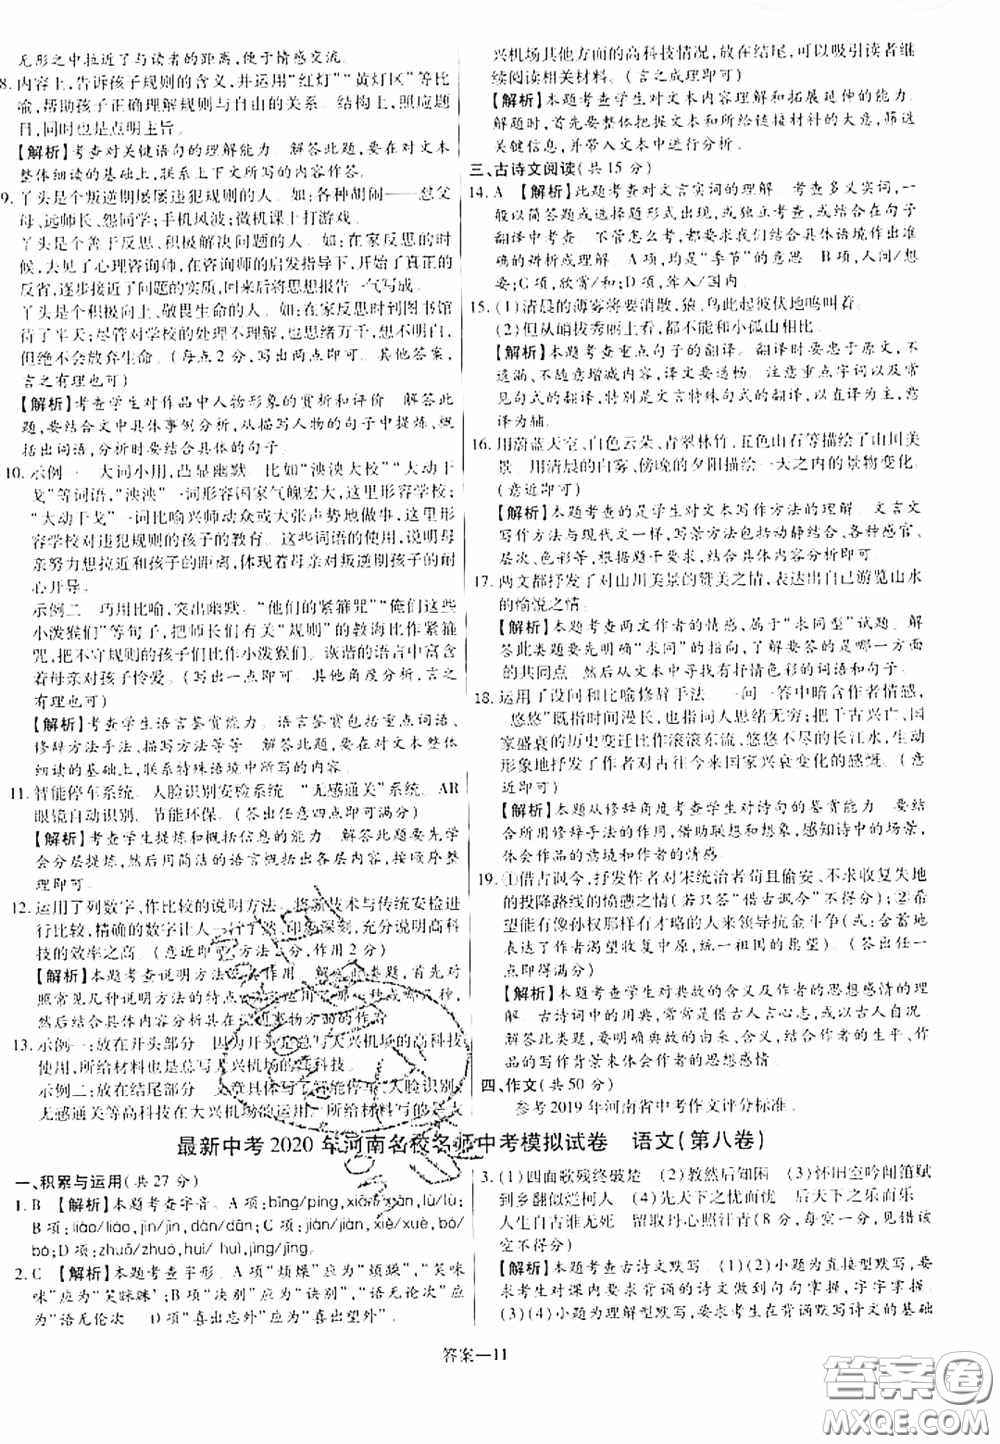 无形之中拉近了与读者的距离,便于情感交流.
8. 内容上,告诉孩子规则的含义,并运用“红灯”“黄灯区”等比
喻,帮助孩子正确理解规则与自由的关系。结构上,照应题
目,同时也是点明主旨。
【解析】考查对关键语句的理解能力 解答此题,要在对文本
整体细读的基础上,联系上下文所写的内容作答.
9. 丫头是个叛逆期屡屡违犯规则的人。如:各种胡闹——怼父
母,远师长、怨同学;手机风波;微机课上打游戏.
丫头是个善于反思、积极解决问题的人。如:在家反思的时
候,去见了心理咨询师,在咨询师的启发指导下,开始了真正的
反省,逐步接近了问题的实质,回来后将思想报告一气写成。
丫头是个积极向上、敬畏生命的人。如:在家反思时到图书馆
待了半天;尽管对学校的处理不理解、也思绪万千,想不明白,
但绝不会放弃生命。(每点2分,写出两点即可。其他答案,
言之有理也可)
【解析】考查学生对作品中人物形象的赏析和评价 解答此
题,要结合文中具体事例分析,从描写人物的句子中提炼、概
括出词语,分析时要结合具体的句子.
10. 示例一 大词小用,凸显幽默 比如“泱泱大校”“大动干
戈”等词语,“泱泱”一词形容国家气魄宏大,这里形容学校;
“大动干戈”一词比喻兴师动众或大张声势地做事,这里形
容学校对违犯规则的孩子的教育。这些词语的使用,写出母
亲努力想拉近和孩子的距离,体现了母亲对叛逆期孩子的耐
心开导.
示例二 巧用比喻,突出幽默。“他们的紧箍咒”“俺们这些
小泼猴们”等句子,把师长们有关“规则”的教诲比作紧箍
咒,把不守规则的孩子们比作小泼猴们。诙谐的语言中富含
着母亲对孩子怜爱。(写出一点即可。其他角度分析,言之
有理也可)
【解析】考查学生语言鉴赏能力。语言鉴赏包括重点词语、
修辞方法手法、描写方法等等 解答此题,要在对文本整体
细读的基础上,联系特殊语境中所写的内容作答.
11. 智能停车系统。人脸识别安检系统 “无感通关”系统。AR
眼镜自动识别。节能环保。(答出任意四点即可)
【解析】考查学生提炼和概括信息的能力 解答此题要先学
会分层提炼,然后用简洁的语言概括出各内容,按顺序整
理即可.
12. 运用了列数字,作比较的说明方法。将新技术与传统安检进
行比较,精确的数字让人一目了然,印象深刻,充分说明高科
技的效率之高。(意近即可,方法2分,作用2分)
【解析】本题考查说明方法及其作用 解答此类题,首先对
照常见几种说明方法的特点,确定运用了哪一种说明方法,
然后结合具体内容分析其在说明事物方面的作用
13. 示例一:放在开头部分 因为开头是总写大兴机场的高科技
使用,所给材料也是总写大兴机场的高科技.
示例二:放在结尾部分 文章具体写了智能停车、人脸识别、
无感通关等高科技在大兴机场的运用。所给材料写的是大
兴机场其他方面的高科技情况,放在结尾,可以吸引读者继
续阅读相关材料。(言之成理即可)
【解析】本题考查学生对文本内容理解和拓展延伸的能力。
解题时,首先要整体把握文本和所给链接材料的大意,筛选
关键信息,并带入文本中进行分析.
三、古诗文阅读(共15分)
14. A 【解析】此题考查对文言实词的理解 考查多义实词,一
般以简答题或选择题形式出现,或独立考查,或结合在句子
翻译中考查 不管怎么考,都要求结合具体语境,作出准确
的分析和正确的理解 A项,均是“季节”的意思 B项,人间/想
要;C项,欣赏/和;D项,代词,它的/语气词
15. (1)清晨的薄雾将要消散,猿、鸟此起彼伏地鸣叫着。
(2)但从峭拔秀丽上看,都不能和小孤山相比。
【解析】本题考查重点句子的翻译。翻译时要忠于原文,不
遗漏、不随意增减内容,译文要通畅。注意重点字词以及常
见句式的翻译,特别是文言特殊句式的翻译。直译为主,意
译为辅.
16. 用蔚蓝天空、白色云朵、青翠林竹、五色山石等描绘了山川美
景 用清晨的白雾、傍晚的夕阳描绘一天之内的景物变化。
(意近即可)
【解析】本题考查的是学生对文本写作方法的理解。文言文
写作方法与现代文一样,写景方法包括动静结合、各种感官、
层次、色彩等,根据文本内容,结合具体内容分析即可
17. 两文都抒发了对山川美景的赞美之情,表达出自己游览山水
的愉悦之情.
【解析】本题考查两文作者的情感,属于“求同型”试题。解
答此类题要先明确“求同”的指向,了解要答的是哪一方面
的共同点 然后从文本中寻找有抒情色彩的词语和句子.
18. 运用了设问和比喻修辞手法 一问一答中暗含作者情感,
“悠悠”既指时间漫长,也指词人思绪无穷;把千古兴亡、国
家盛衰的历史变迁比作滚滚东流、悠悠不尽的长江水,生动
形象地抒发了作者对古往今来国家兴衰变化的感慨。(意近
即可)
【解析】本题从修辞角度考查学生对诗句的鉴赏能力 要结
合所用修辞手法的作用,借助联想和想象,感知诗中的场景,
体会作品的意境和作者的情感.
19. ①借古讽今,抒发作者对宋统治者苟且偷安、不求收复失地
的投降路线的愤懑之情(若只答“借古讽今”不得分);②希
望能有像孙权那样有才略的人来领导抗金斗争(或:含蓄地
表达了作者渴望收复中原,统一祖国的爱国思想。任答一
点即得满分)
【解析】本题考查学生对典故的含义及作者的思想感情的理
解。古诗词中的用典,常常是借古人言心志,或以古人自况。
解答此类题,要明确典故的由来、含义,结合作者的生平、作
品的写作背景来体会作者的思想感情.
四、作文(共50分)
参考2019年河南省中考作文评分标准.
最新中考2020年河南名校名师中考模拟试卷 语文(第八卷)
一、积累与运用(共27分)
1. B 【解析】考查字音。A项:bǐng/píng,xiāo/xiào,lù/lǜ;
B项:liáo/liáo,jìn/jìn,dàn/dān;C项:jiān/jiàn,xiě/xuè,bó/
bó;D项:zhuō/zhuó,huì/huì,jīng/jīng.
2. C 【解析】本题考查字形。A项“烦燥”应为“烦躁”、“笑咪
咪”应为“笑眯眯”;B项“决别”应为“诀别”,“语无论次”应
为“语无伦次 D项“喜出忘外”应为“喜出望外”.
3. (1)四面歌残终破楚 (2)教然后知困 (3)怀旧空吟闻笛赋
到乡翻似烂柯人 (4)先天下之忧而忧 后天下之乐而乐
人生自古谁无死 留取丹心照汗青(8分,每空一分,见错误
该空不得分)
【解析】本题考查古诗文默写。(1)(2)小题为直接型默写,
要求学生对课内要求背诵的诗文做到句句掌握,字字掌握;
(3)(4)小题为理解型默写,要求考生在背诵默写诗文的基础
答案—11
答案圈
MXQE.COM